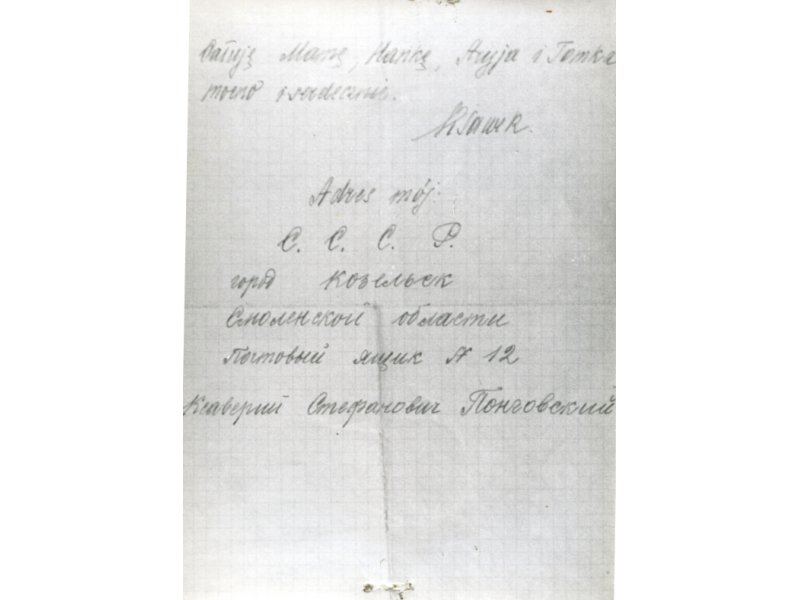 Całuję Manę, Hankę, Stryja i Tomka
mocno i serdecznie.
Ksawek.
Adres mój:
С. С. С. Р.
город Козельск
Смоленской области
Почтовый ящик N 12
Ксаверий Стефанович Понговский